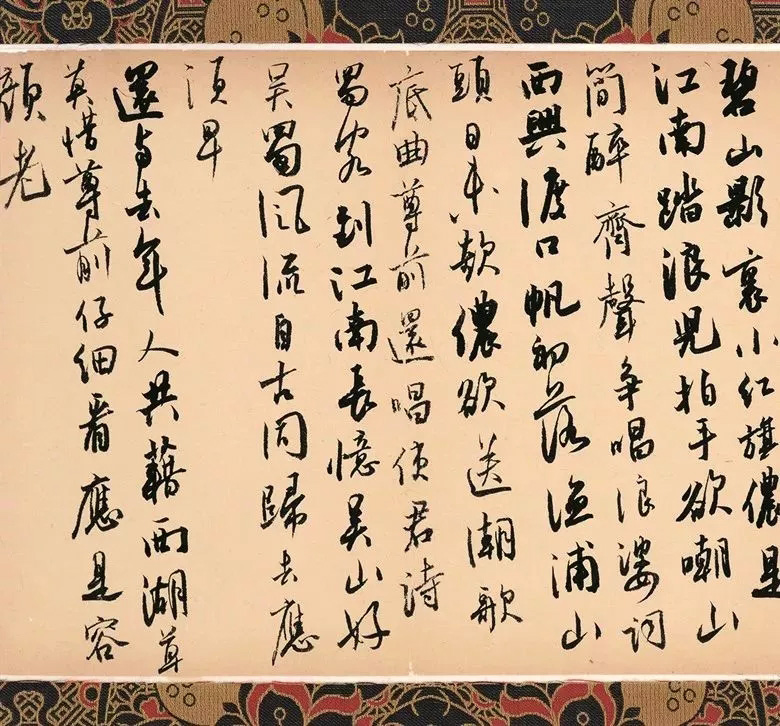 碧山影裏小紅旗儂是
江南踏浪兒拍手欲嘲山
簡醉齊聲爭唱浪婆詞
西興渡口帆初落漁浦山
頭日未欹儂欲送潮歌
底曲尊前還唱使君詩
蜀客到江南長憶吳山好
吳蜀風流自古同歸去應
須早
還与去年人共藉西湖草
莫惜尊前仔細看應是容
顏老